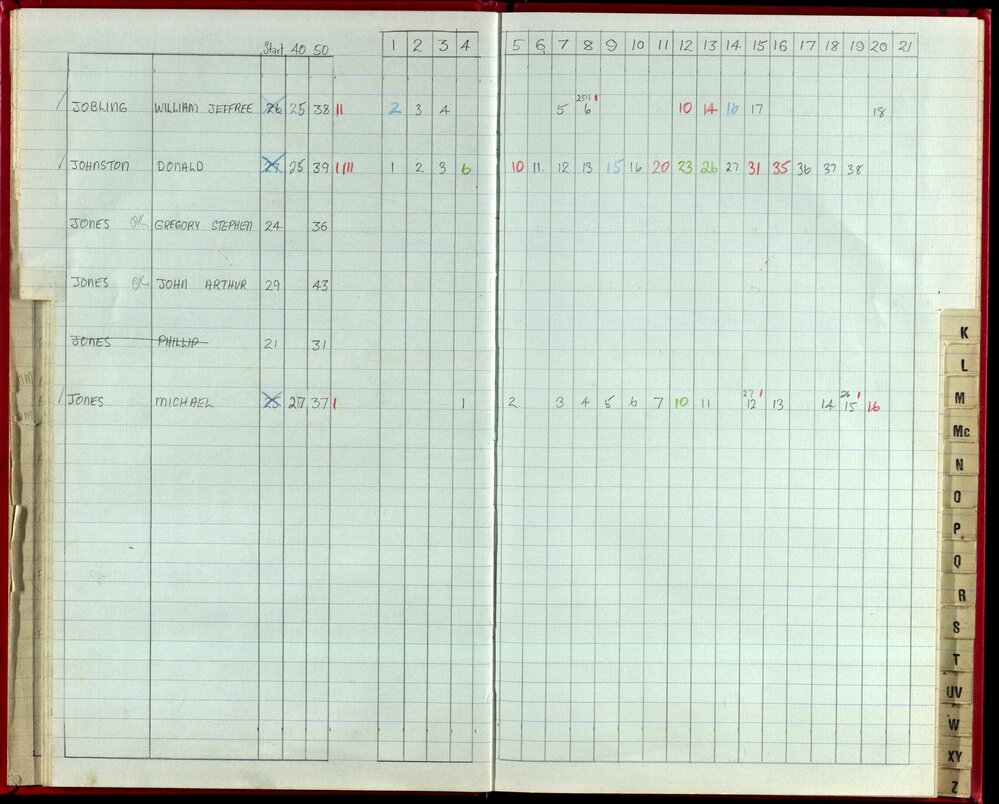 Start 40 50 1 2 3 4 5 6 7 8 9 10 11 12 13 14 15 16 17 18 19 20 21
JOBLING WILLIAM JEFFREE 26 25 38 2 3 4 5 6 10 14 16 17 18
JOHNSTON DONALD 27 25 39 1 2 3 6 10 11. 12 13 15 16 20 23 26 27 31 35 36 37 38
JONES OK GREGORY STEPHEN 24 36
JONES OK JOHN ARTHUR 29 43
JONES PHILLIP 21 31
JONES MICHAEL 25 27 37 1 2 3 4 5 6 7 10 11 27 12 13 14 26 15 16
K
L
M
Mc
N
O
P
Q
R
S
T
UV
W
XY
Z